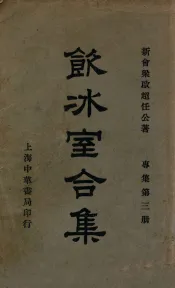 新會梁啟超任公著
專集第三册
飲冰室合集
上海中華書局印行